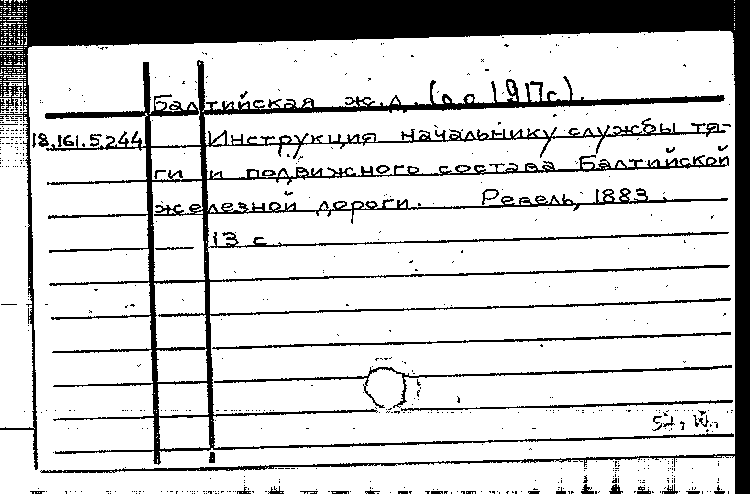 Балтийская ж.д. (до 1917г).
18.161.5.244 Инструкция начальнику службы тя-
ги и подвижного состава Балтийской
железной дороги. Ревель, 1883.
13 с.